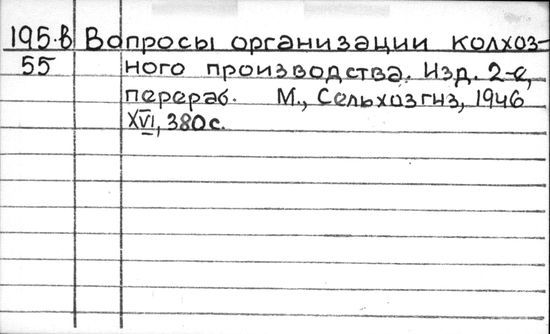 195.В Вопросы организации колхоз-
55 ного производства. Изд. 2-е,
перераб. М., Сельхозгиз, 1946
XVI, 380 с.